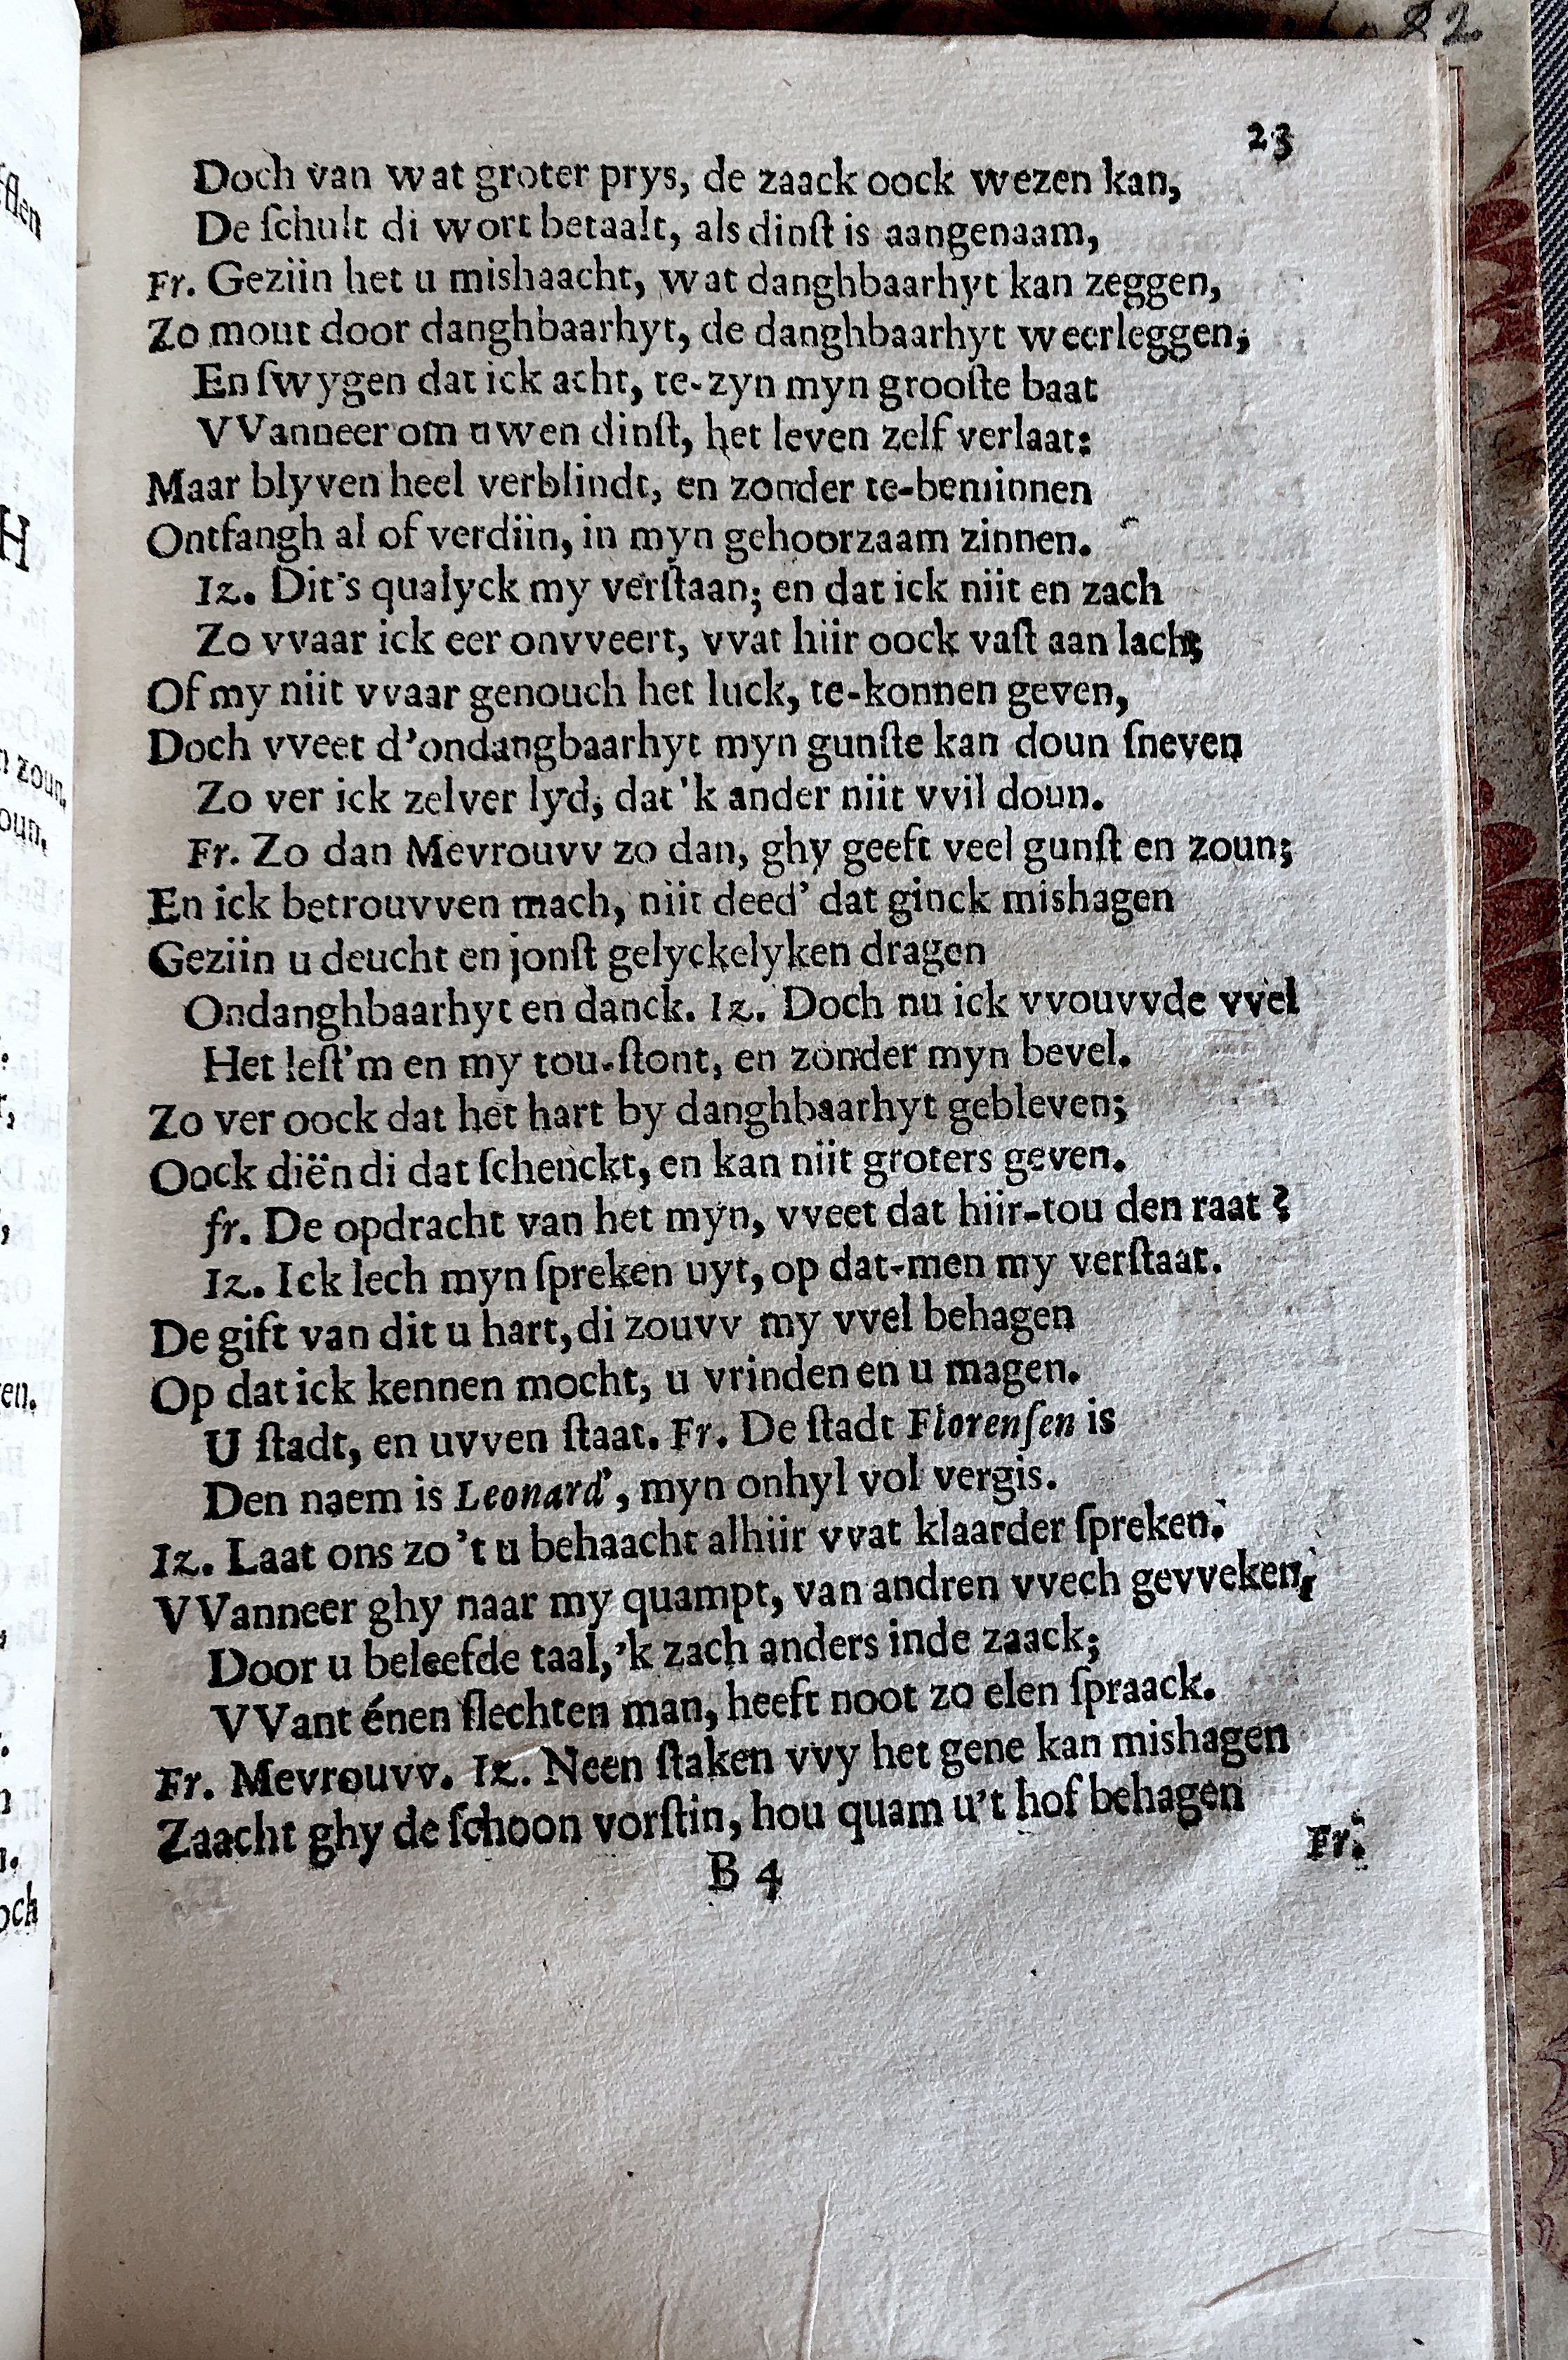 23
Doch van wat groter prys, de zaack oock wezen kan,
De ſchult di wort betaalt, als dinſt is aangenaam,
Fr. Geziin het u mishaacht, wat danghbaarhyt kan zeggen,
Zo mout door danghbaarhyt, de danghbaarhyt weerleggen;
En ſwygen dat ick acht, te-zyn myn grooſte baat
VVanneer om uwen dinſt, het leven zelf verlaat:
Maar blyven heel verblindt, en zonder te-beminnen
Ontfangh al of verdiin, in myn gehoorzaam zinnen.
Iz. Dit's qualyck my verſtaan; en dat ick niit en zach
Zo vvaar ick eer onvveert, vvat hiir oock vaſt aan lach;
Of my niit vvaar genouch het luck, te-konnen geven,
Doch vveet d'ondangbaarhyt myn gunſte kan doun ſneven
Zo ver ick zelver lyd; dat 'k ander niit vvil doun.
Fr. Zo dan Mevrouvv zo dan, ghy geeft veel gunſt en zoun;
En ick betrouvven mach, niit deed' dat ginck mishagen
Geziin u deucht en jonſt gelyckelyken dragen
Ondanghbaarhyt en danck. Iz. Doch nu ick vvouvvde vvel
Het leſt'm en my tou-ſtont, en zonder myn bevel.
Zo ver oock dat het hart by danghbaarhyt gebleven;
Oock diën di dat ſchenckt, en kan niit groters geven.
fr. De opdracht van het myn, vveet dat hiir-tou den raat?
Iz. Ick lech myn ſpreken uyt, op dat-men my verſtaat.
De gift van dit u hart, di zouvv my vvel behagen
Op dat ick kennen mocht, u vrinden en u magen.
U ſtadt, en uvven ſtaat. Fr. De ſtadt Florenſen is
Den naem is Leonard', myn onhyl vol vergis.
Iz. Laat ons zo 't u behaacht alhiir vvat klaarder ſpreken.
VVanneer ghy naar my quampt, van andren vvech gevveken,
Door u beleefde taal, 'k zach anders inde zaack;
VVant énen ſlechten man, heeft noot zo elen ſpraack.
Fr. Mevrouvv. Iz. Neen ſtaken vvy het gene kan mishagen
Zaacht ghy de ſchoon vorſtin, hou quam u't hof behagen
B 4
Fr.